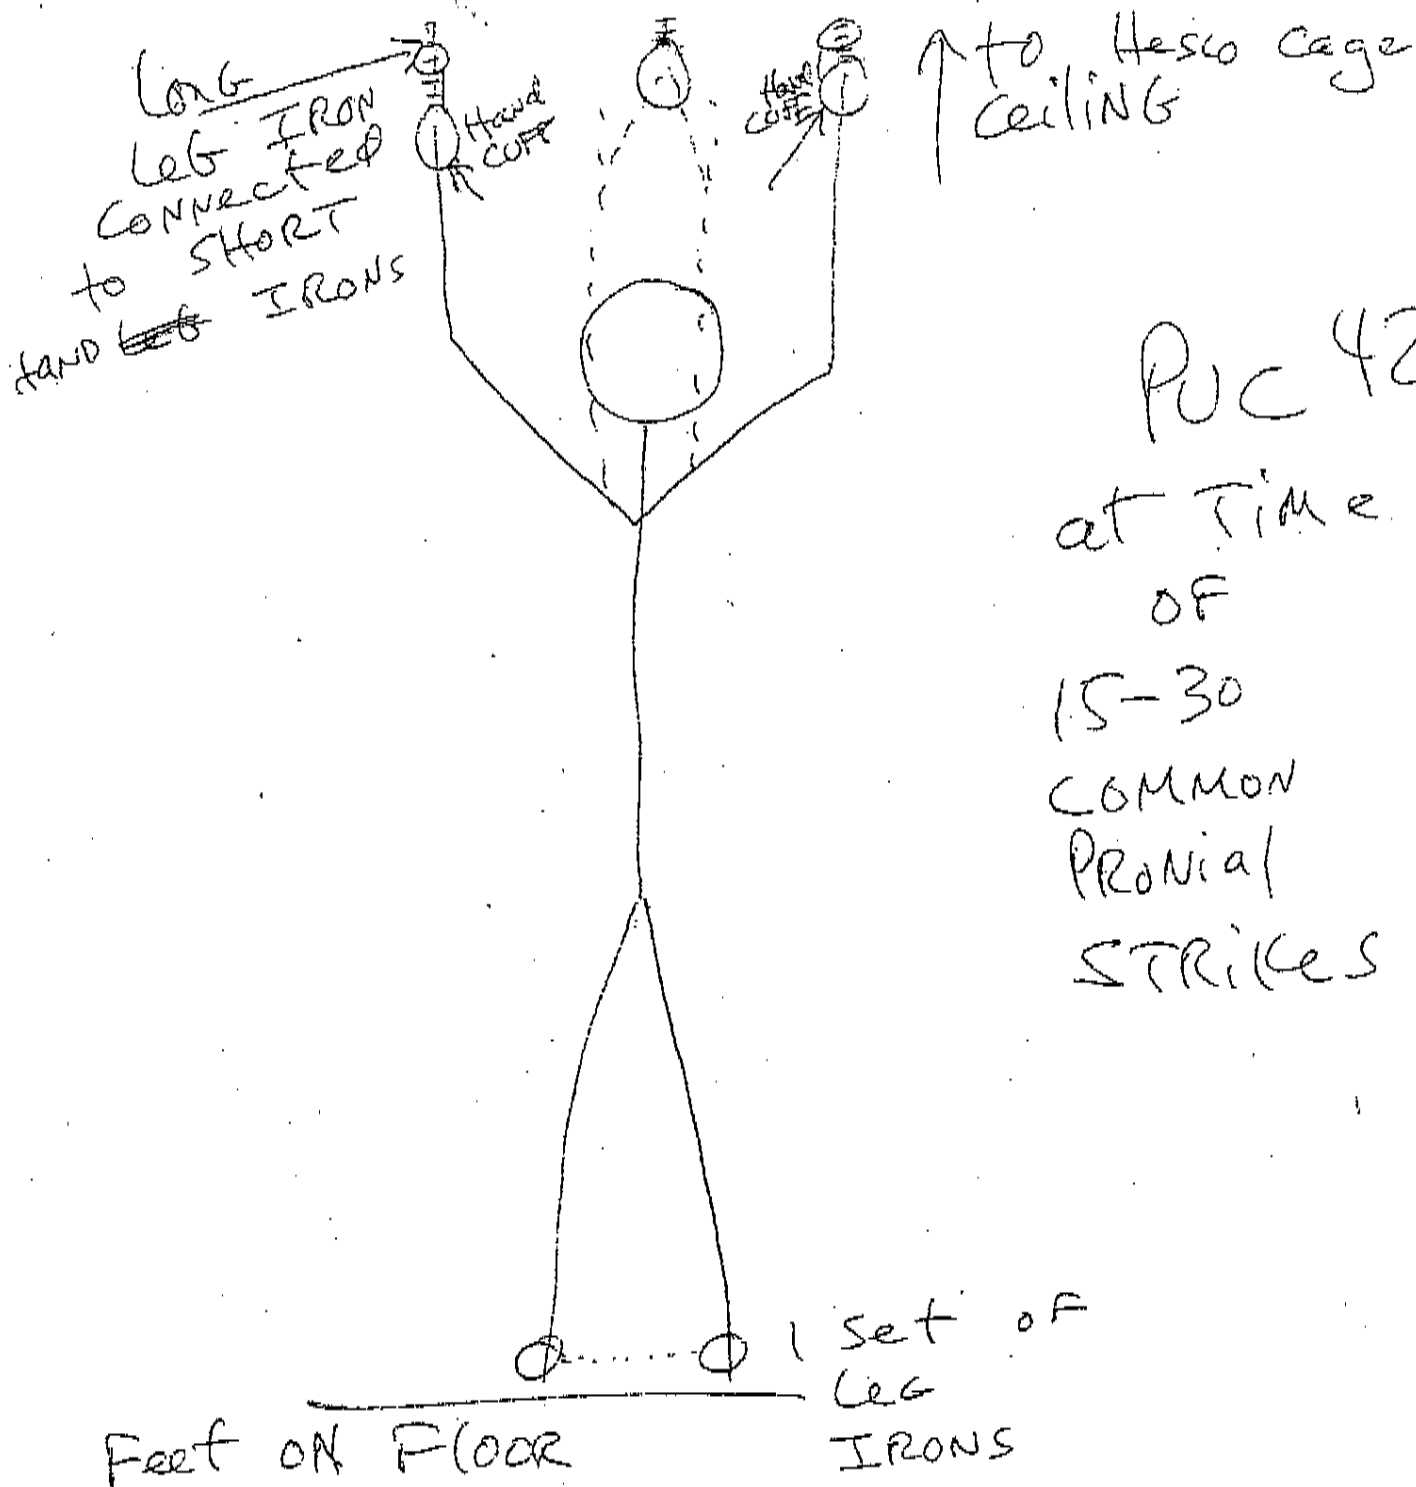 LONG
LEG IRON
CONNECTED
to SHORT
HAND LEG IRONS
Hand
CUFF
Hand
CUFF
to Hesco cage
ceiliNG
PUC 42
at TiMe
OF
15-30
COMMON
PRONial
STRiKes
1 Set oF
LeG
IRONS
Feet ON FlOOR